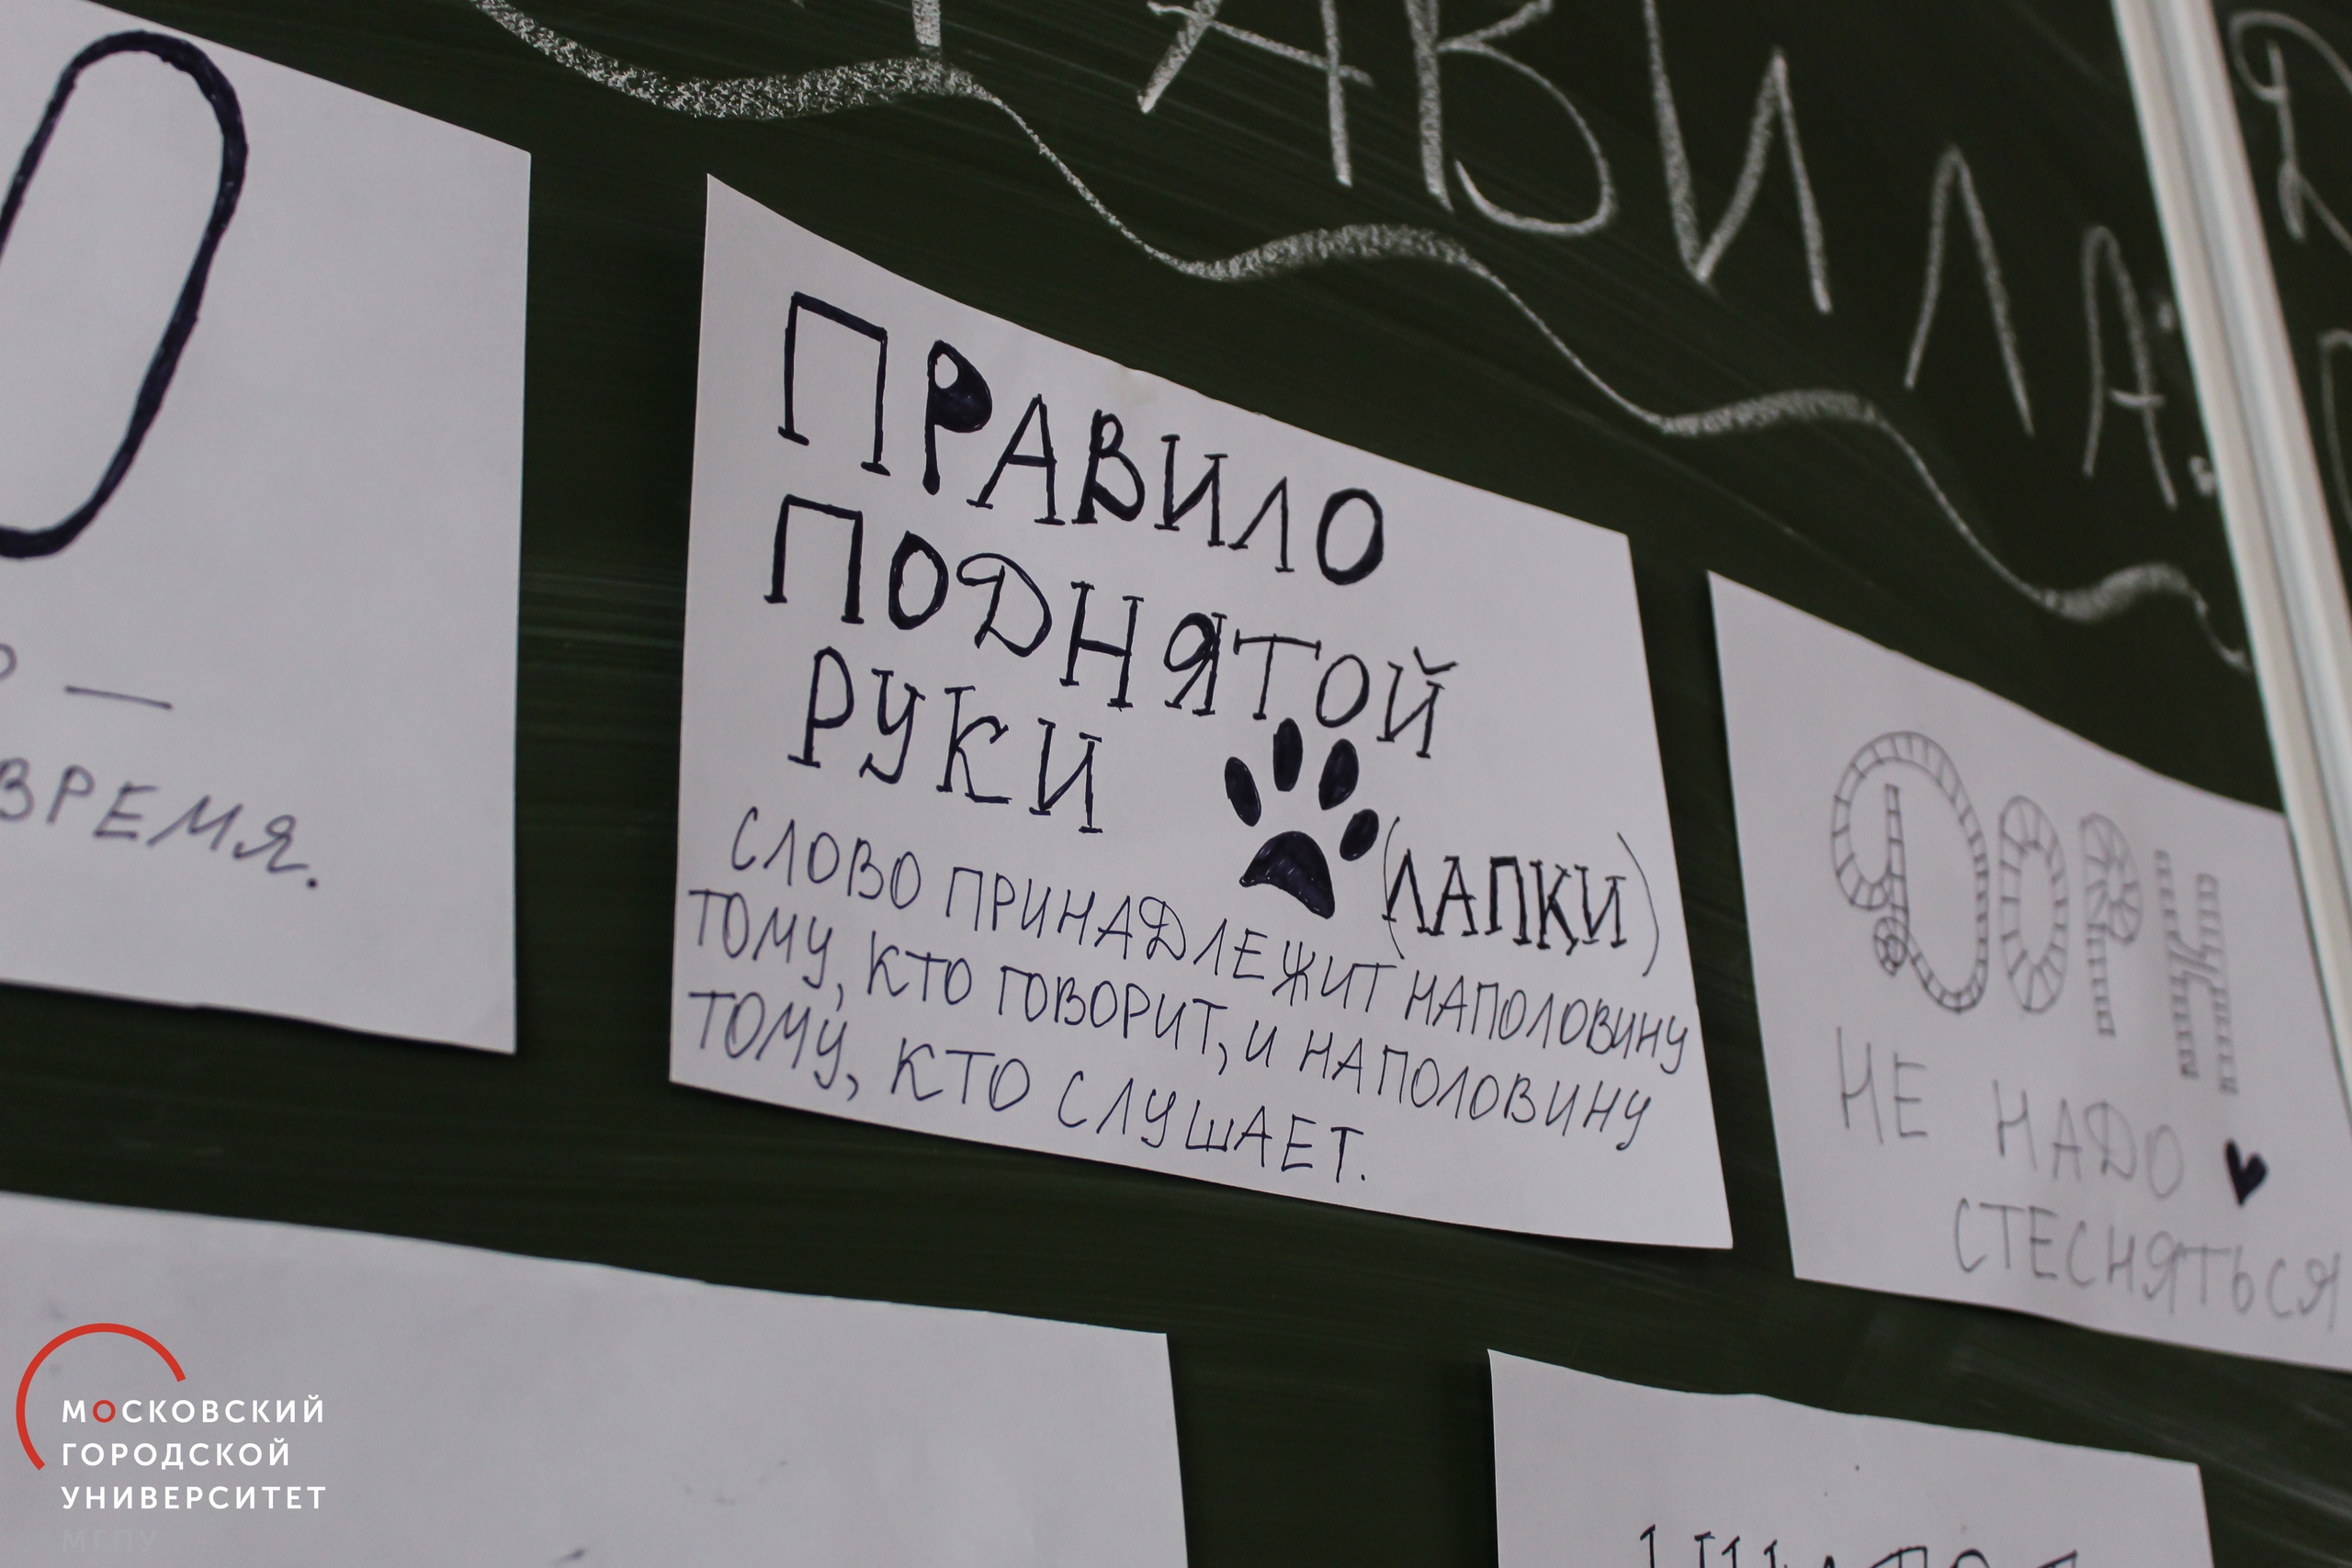 ПРАВИЛА:
О
ВРЕМЯ.
ПРАВИЛО
ПОДНЯТОЙ
РУКИ
(ЛАПКИ)
СЛОВО ПРИНАДЛЕЖИТ НАПОЛОВИНУ
ТОМУ, КТО ГОВОРИТ, И НАПОЛОВИНУ
ТОМУ, КТО СЛУШАЕТ.
НЕ НАДО
СТЕСНЯТЬСЯ
МОСКОВСКИЙ
ГОРОДСКОЙ
УНИВЕРСИТЕТ
МГПУ